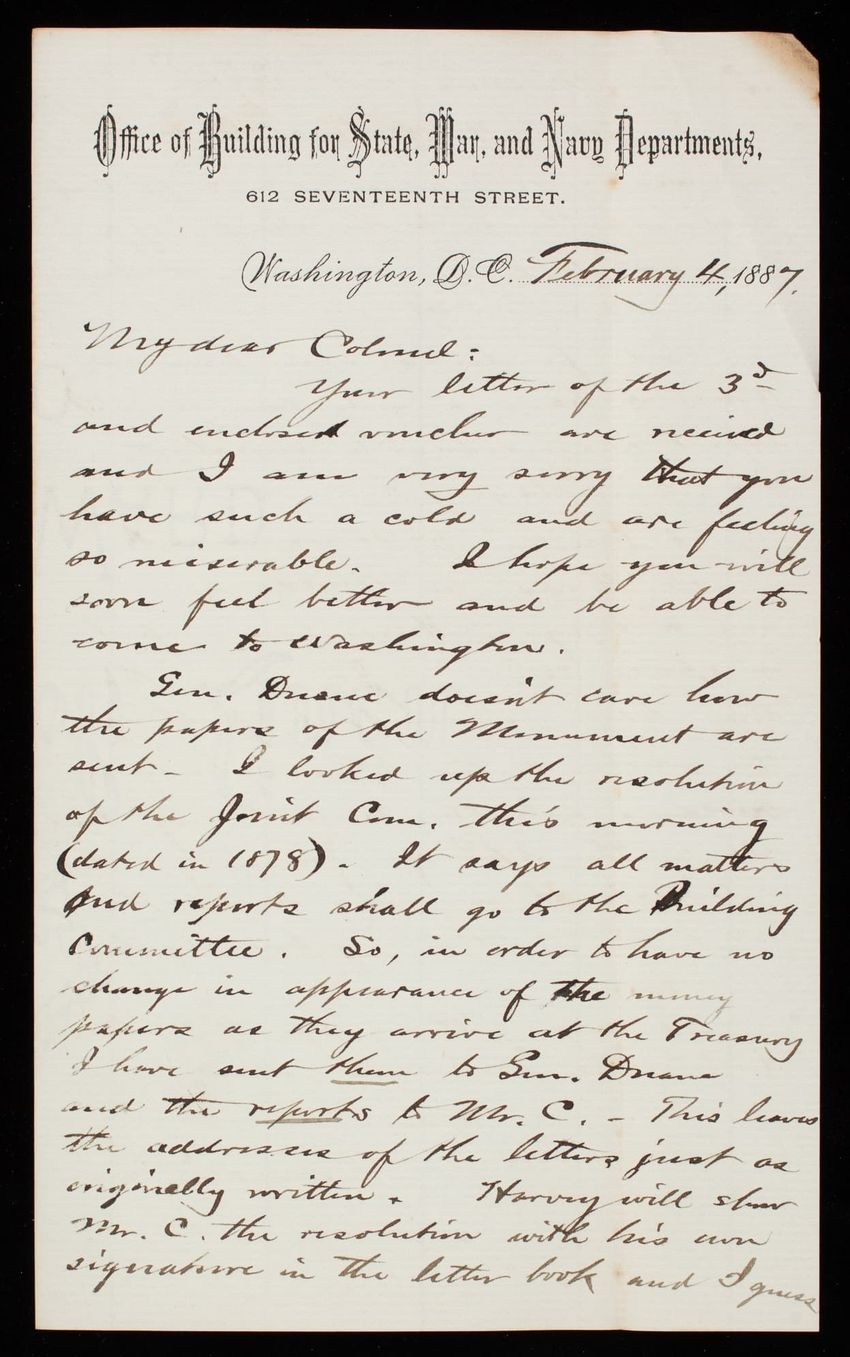 Office of Building for State, War, and Navy Departments,
612 SEVENTEENTH STREET.
Washington, D.C. February 4, 1887.
My dear Colonel:
Your letter of the 3d
and enclosed voucher are received
and I am very sorry that you
have such a cold and are feeling
so miserable. I hope you will
soon feel better and be able to
come to Washington.
Gen. Duane doesn't care how
the papers of the Monument are
sent - I looked up the resolution
of the Joint Com. this morning
(dated in 1878). It says all matters
and reports shall go to the Building
Committee. So, in order to have no
change in appearance of the money
papers as they arrive at the Treasury
I have sent them to Gen. Duane
and the reports to Mr. C. - This leaves
the addresses of the letters just as
originally written. Harvey will show
Mr. C. the resolution with his own
signature in the letter book and I guess